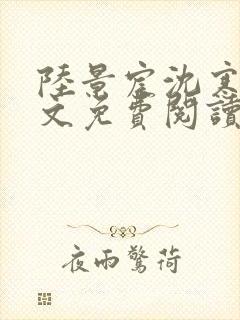 陸景宦沈寒
文免費閱讀
夜雨驚荷